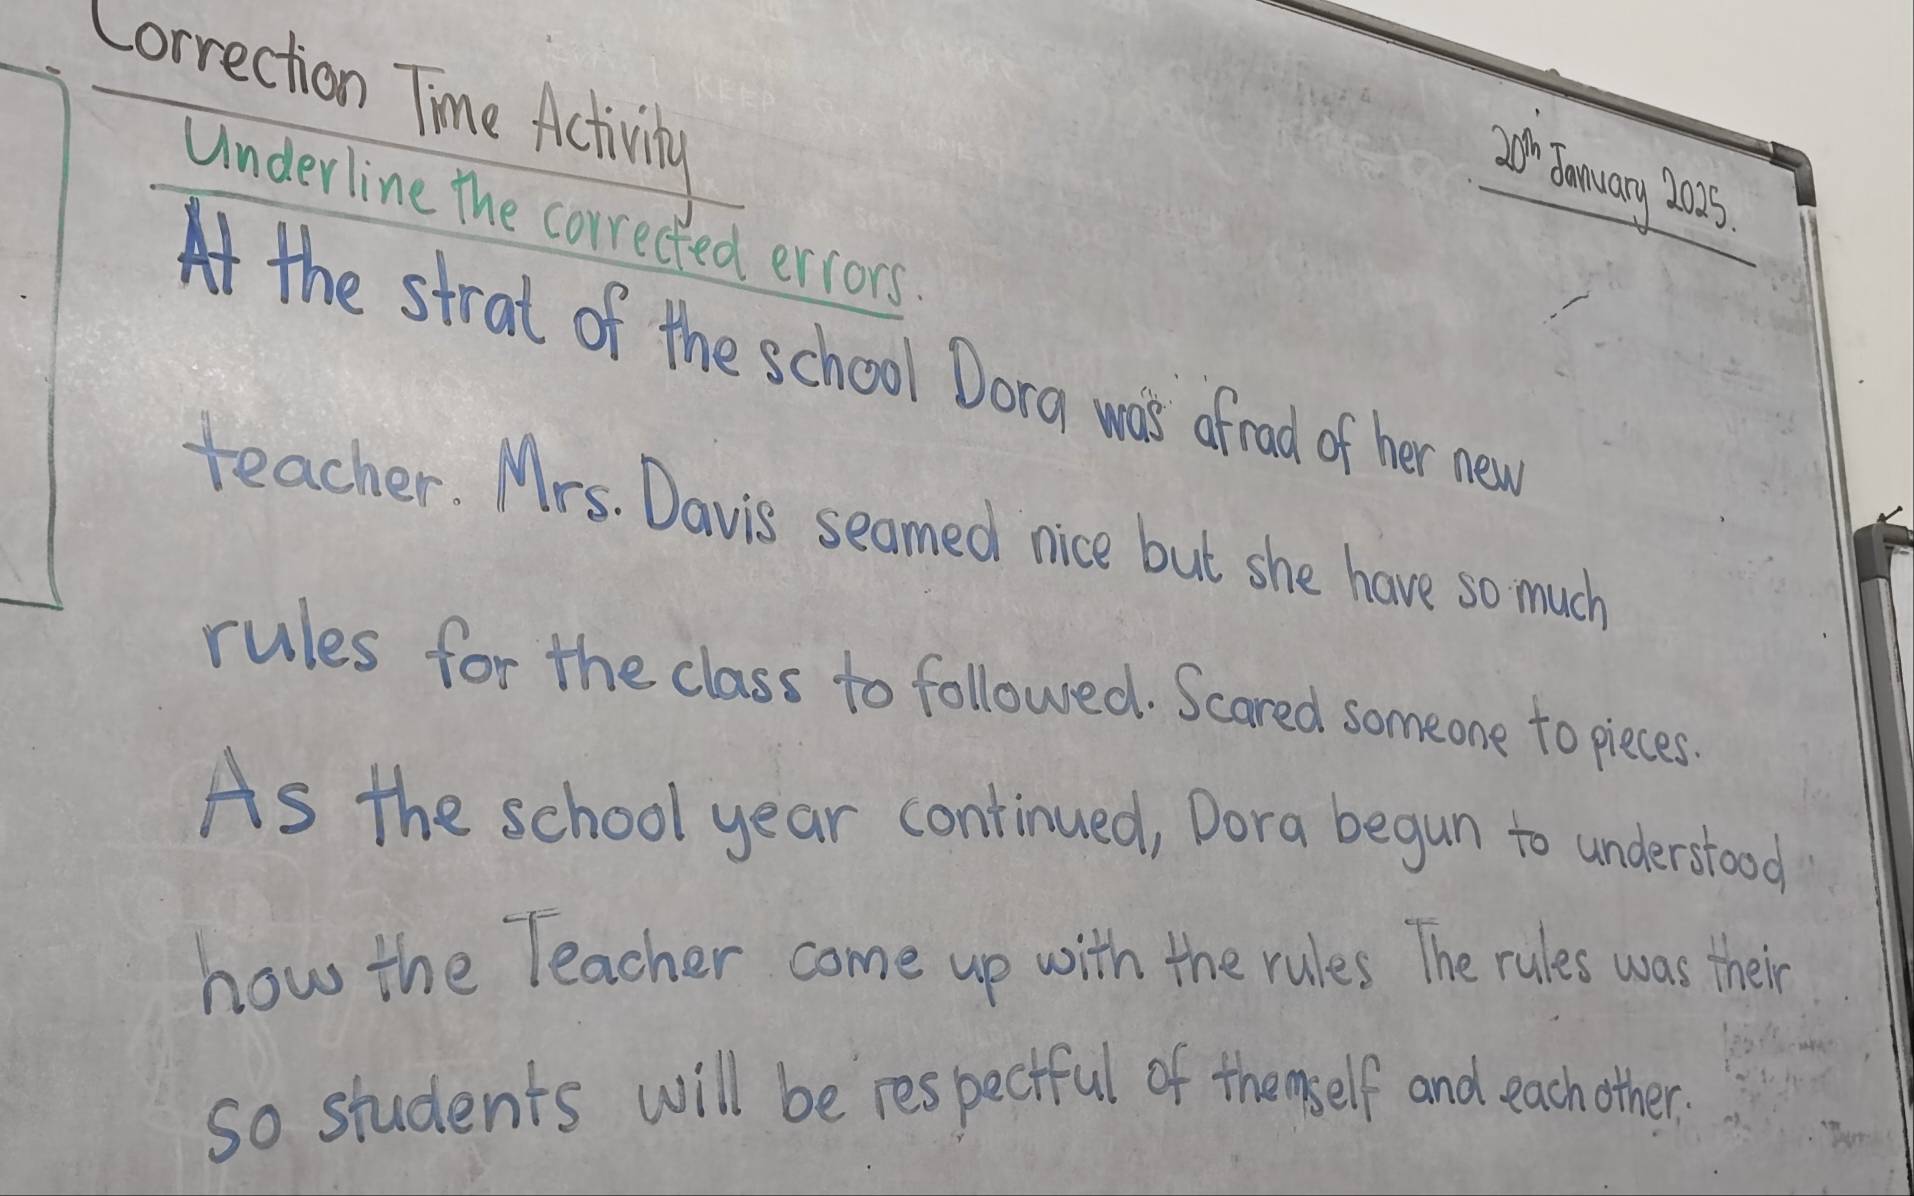 Correction Time Activity
20th January 2025.
Underline the corrected errors.
At the strat of the school Dora was afrad of her new
teacher. Mrs. Davis seamed nice but she have so much
rules for the class to followed. Scared someone to pieces.
As the school year continued, Dora begun to understood
how the Teacher come up with the rules The rules was their
so students will be respectful of themself and each other.